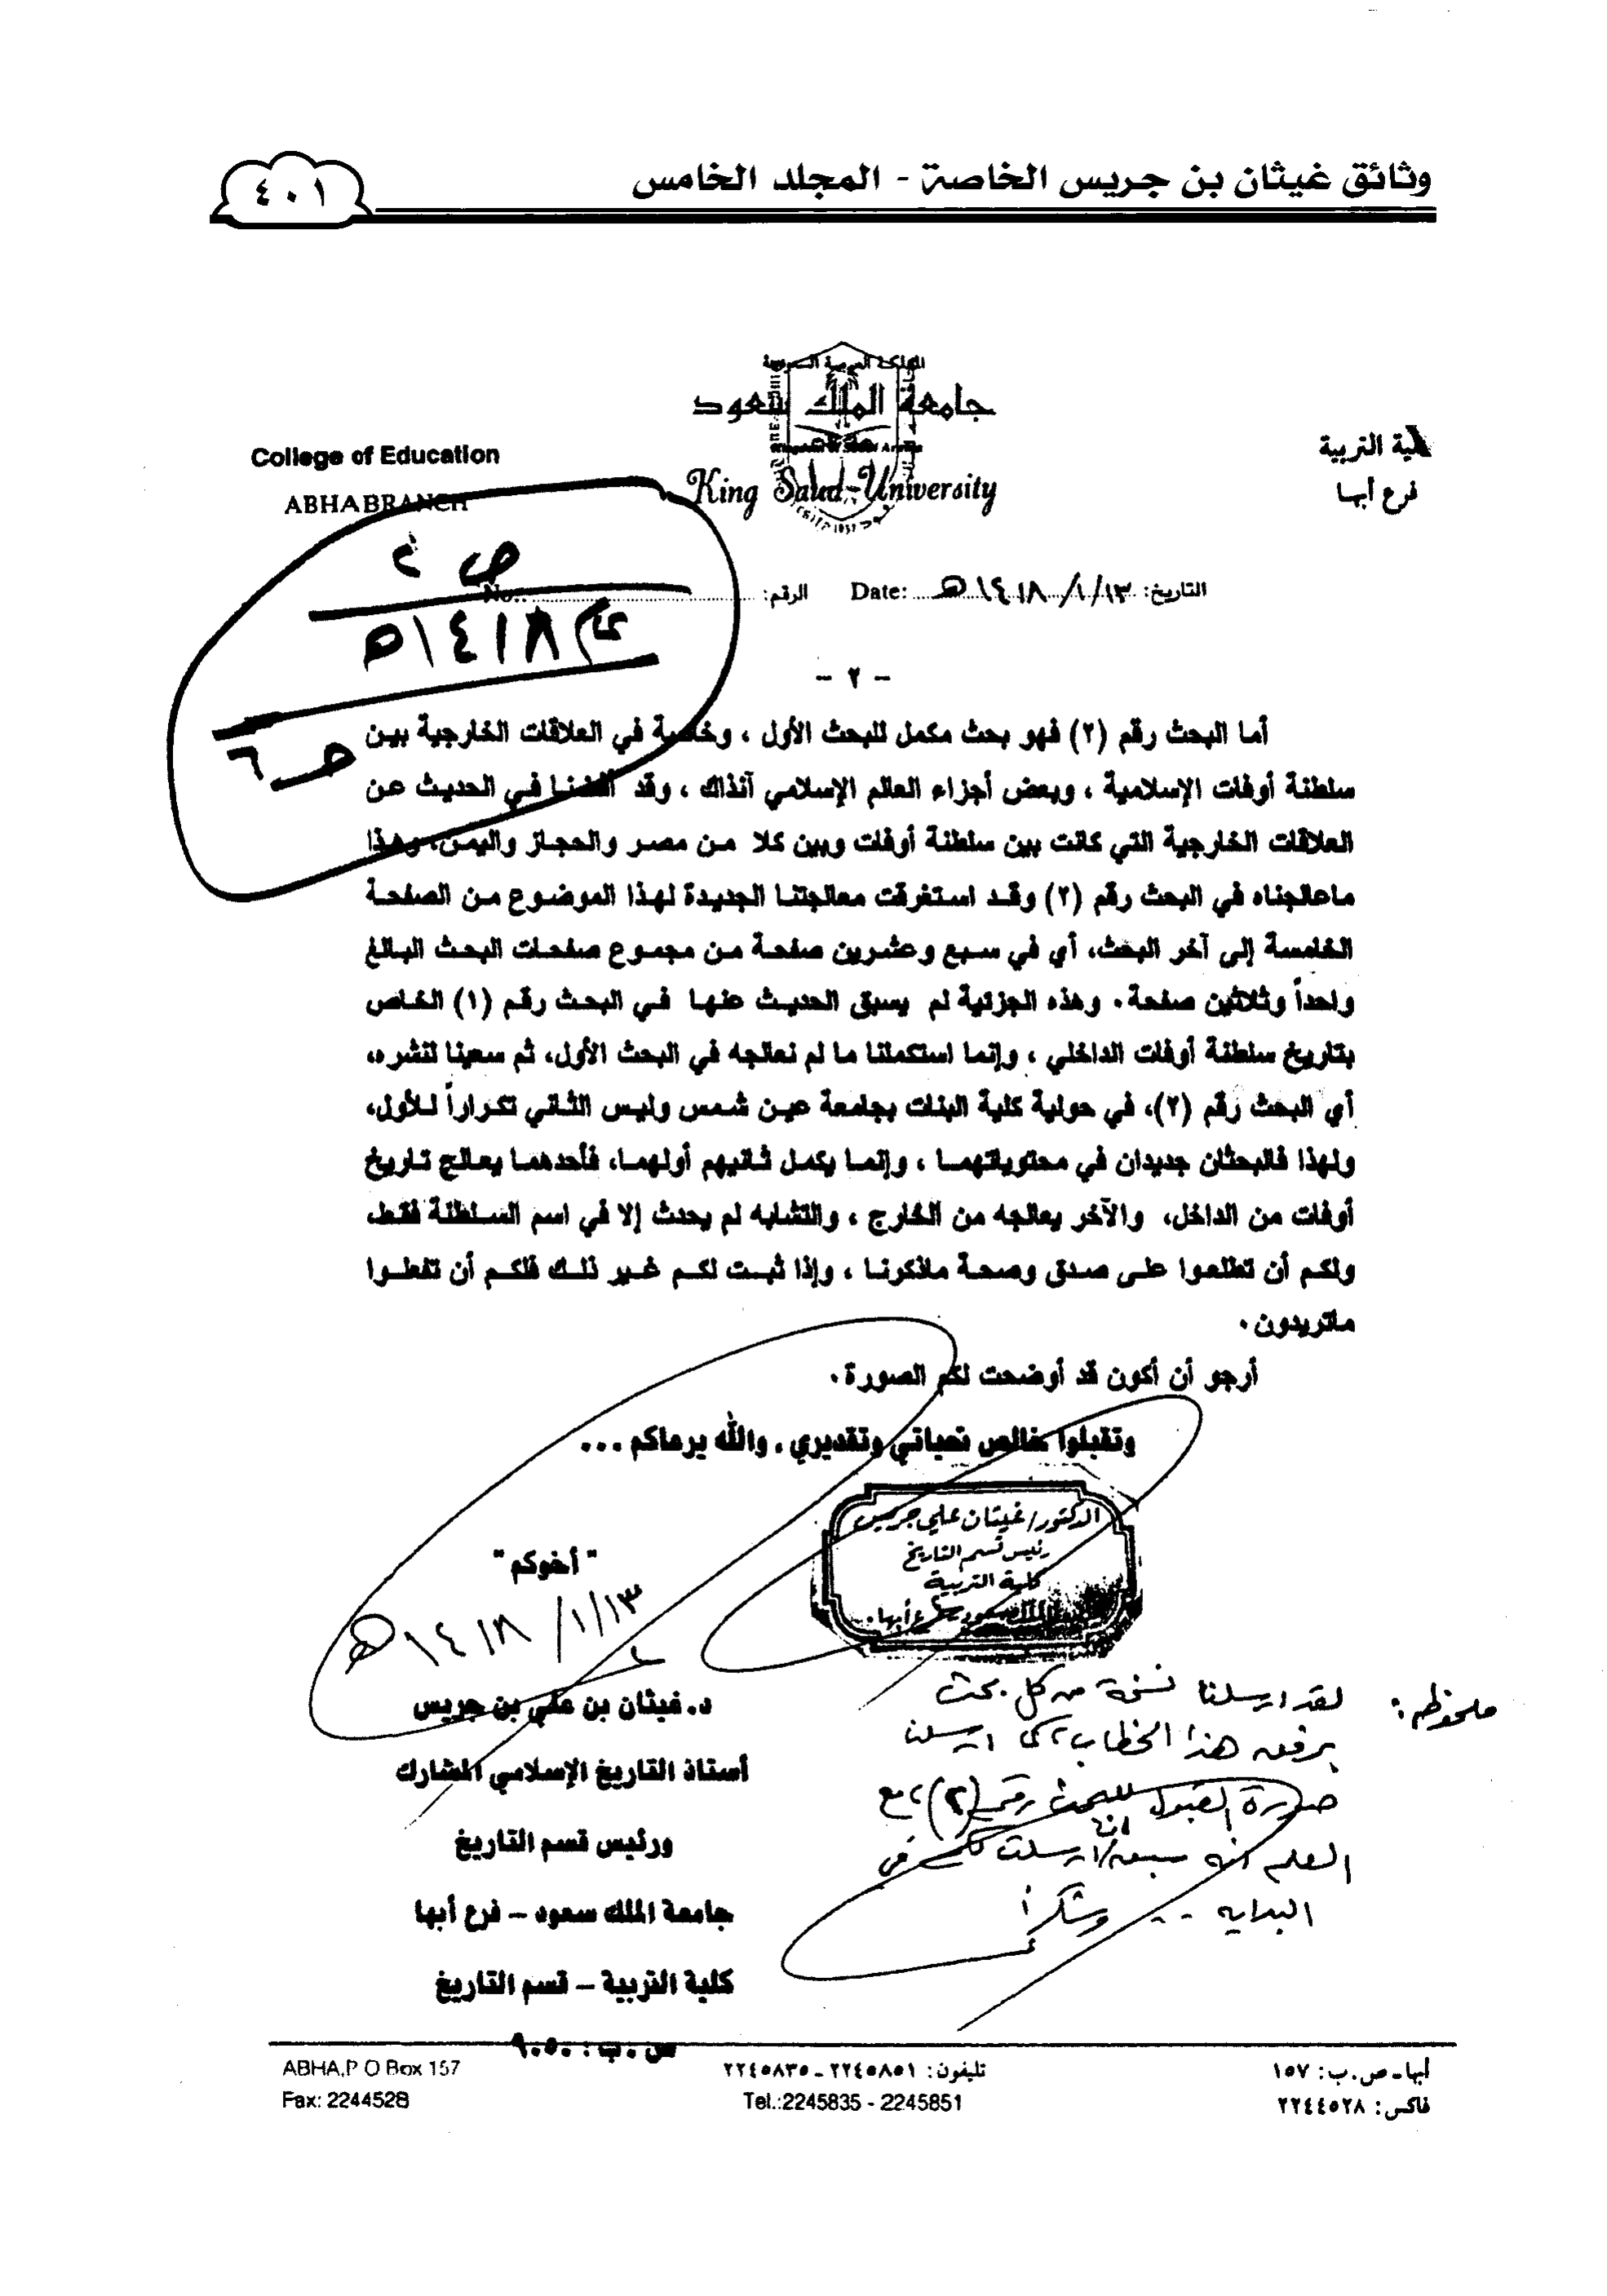 وثائق غيثان بن جريس الخاصة - المجلد الخامس
٤٠١
المملكة العربية السعودية
جامعة الملك سعود
King Saud University
كلية التربية
فرع أبها
College of Education
ABHA BRANCH
التاريخ: ١٤١٨/١/١٣هـ Date:
الرقم: No:
ص ٢
عام ١٤١٨هـ
ص ٦
- ٢ -
أما البحث رقم (٢) فهو بحث مكمل للبحث الأول ، وخاصة في العلاقات الخارجية بين
سلطنة أوفات الإسلامية ، وبعض أجزاء العالم الإسلامي آنذاك ، وقد أفضنا في الحديث عن
العلاقات الخارجية التي كانت بين سلطنة أوفات وبين كلا من مصر والحجاز واليمن، وهذا
ماعالجناه في البحث رقم (٢) وقد استغرقت معالجتنا الجديدة لهذا الموضوع من الصفحة
الخامسة إلى آخر البحث، أي في سبع وعشرين صفحة من مجموع صفحات البحث البالغ
واحداً وثلاثين صفحة. وهذه الجزئية لم يسبق الحديث عنها في البحث رقم (١) الخاص
بتاريخ سلطنة أوفات الداخلي ، وإنما استكملنا ما لم نعالجه في البحث الأول، ثم سعينا لنشره،
أي البحث رقم (٢)، في حولية كلية البنات بجامعة عين شمس وليس الثاني تكراراً للأول،
ولهذا فالبحثان جديدان في محتوياتهما ، وإنما يكمل ثانيهم أولهما، فأحدهما يعالج تاريخ
أوفات من الداخل، والآخر يعالجه من الخارج ، والتشابه لم يحدث إلا في اسم السلطنة فقط،
ولكم أن تطلعوا على صدق وصحة ماذكرنا ، وإذا ثبت لكم غير ذلك فلكم أن تفعلوا
ماتريدون .
أرجو أن أكون قد أوضحت لكم الصورة .
وتقبلوا خالص تحياتي وتقديري ، والله يرعاكم ...
الدكتور/ غيثان علي جريس
رئيس قسم التاريخ
كلية التربية
الملك سعود أبها.
" أخوكم "
١٤١٨/١/١٣هـ
د. غيثان بن علي بن جريس
أستاذ التاريخ الإسلامي المشارك
ورئيس قسم التاريخ
جامعة الملك سعود - فرع أبها
كلية التربية - قسم التاريخ
ص . ب : ٩٠٥٠
ملحوظة: لقد ارسلنا نسخة من كل بحث
برفقه هذا الخطاب، كما ارسلنا
صورة القبول للبحث رقم (٢)، مع
العلم انه سبق ان ارسلت لكم في
البدايه .. وشكراً
أبها - ص. ب: ١٥٧
فاكس: ٢٢٤٤٥٢٨
تليفون: ٢٢٤٥٨٥١ - ٢٢٤٥٨٣٥
Tel.:2245835 - 2245851
ABHA,P O Box 157
Fax: 2244528